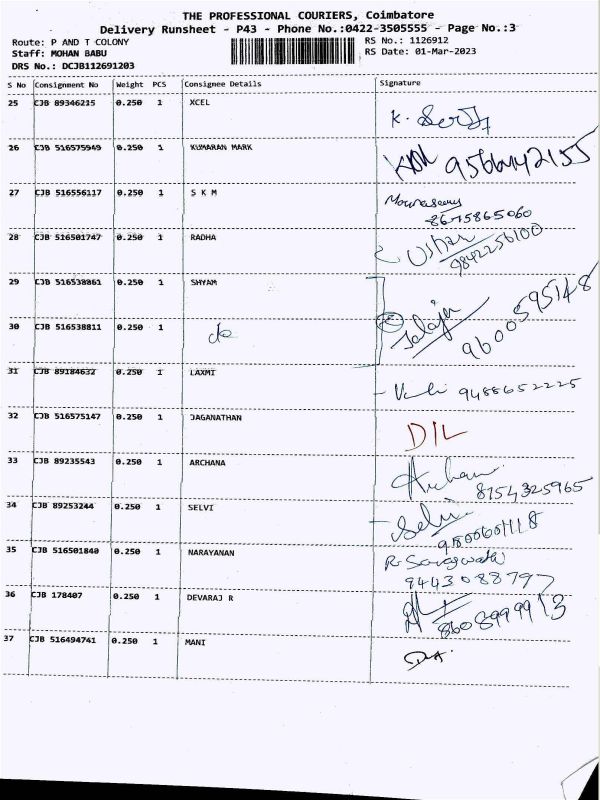 THE PROFESSIONAL COURIERS, Coimbatore
Delivery Runsheet - P43 - Phone No.:0422-3505555 - Page No.:3
Route: P AND T COLONY RS No.: 1126912
Staff: MOHAN BABU RS Date: 01-Mar-2023
DRS No.: DCJB112691203
S No Consignment No Weight PCS Consignee Details Signature
25 CJB 89346215 0.250 1 XCEL K.
26 CJB 516575949 0.250 1 KUMARAN MARK
27 CJB 516556117 0.250 1 S K M
8675865060
28 CJB 516501747 0.250 1 RADHA Usha
9842256100
29 CJB 516538861 0.250 1 SHYAM
30 CJB 516538811 0.250 1 do Jalaja 9600595148
31 CJB 89184632 0.250 1 LAXMI 9488652225
32 CJB 516575147 0.250 1 JAGANATHAN D/L
33 CJB 89235543 0.250 1 ARCHANA
8754325965
34 CJB 89253244 0.250 1 SELVI Selvi
35 CJB 516501840 0.250 1 NARAYANAN R. Saraswathi
9443088797
36 CJB 178407 0.250 1 DEVARAJ R 8608999913
37 CJB 516494741 0.250 1 MANI